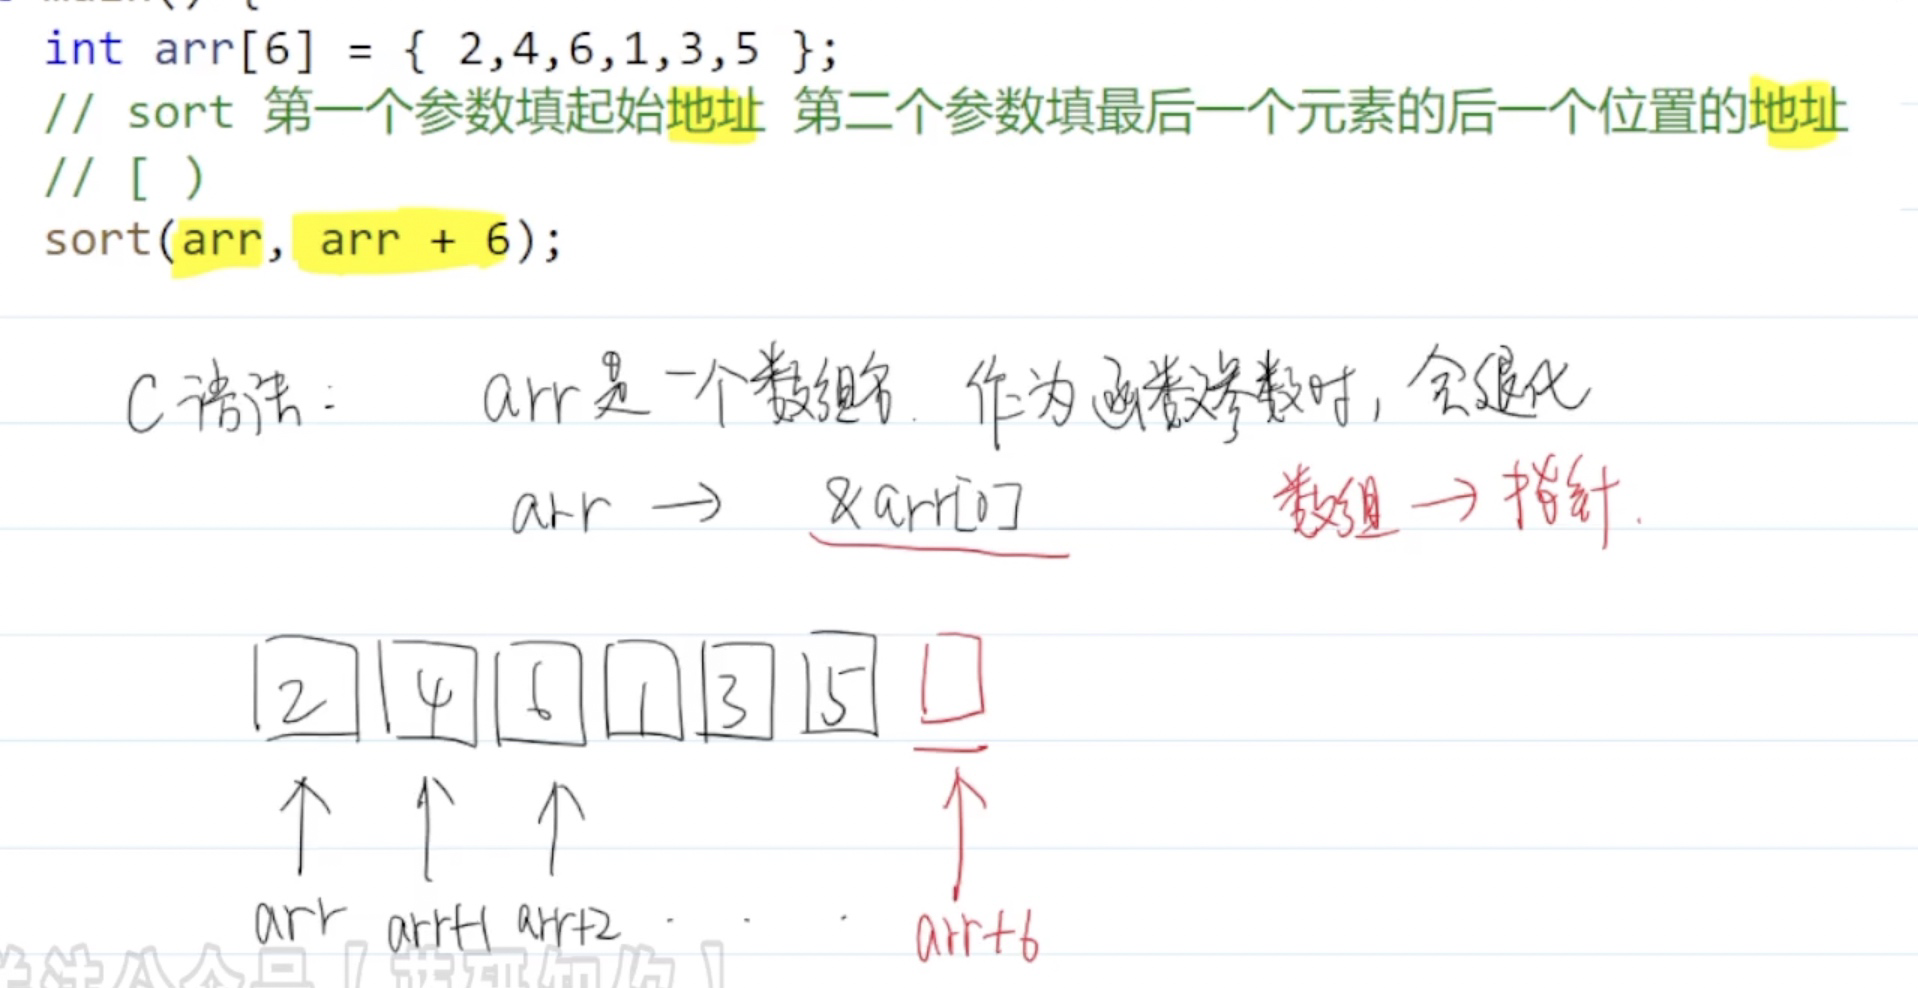 int arr[6] = { 2,4,6,1,3,5 };
// sort 第一个参数填起始地址 第二个参数填最后一个元素的后一个位置的地址
// [ )
sort(arr, arr + 6);
C语法: arr是一个数组名. 作为函数参数时, 会退化
arr → &arr[0] 数组 → 指针.
2 4 6 1 3 5
arr arr+1 arr+2 . . . arr+6